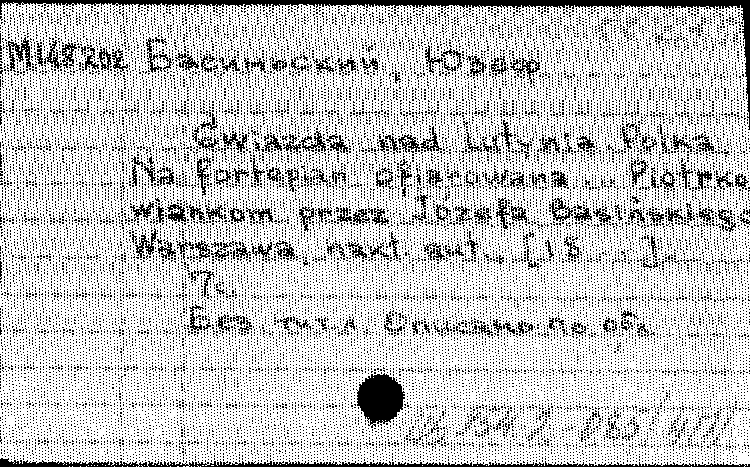 М148202 Басиньский, Юзеф
Gwiazda nad Lutynia. Polka.
Na fortepian ofiarowana... Piotrko-
wiankom przez Józefa Basińskiego
Warszawa, nakł. aut., [18...].
7с.
Без тит. л. Описано по обл.